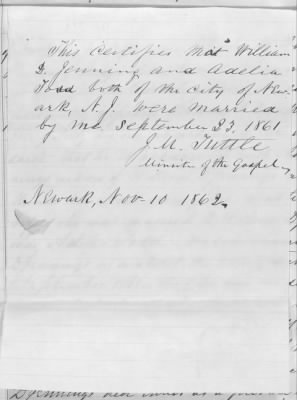 This certifies that William
D. Jenning and Adelia
Todd both of the city of New-
ark, N.J. were married
by me September 23, 1861
J. M. Tuttle
Minister of the Gospel
Newark, Nov-10 1862